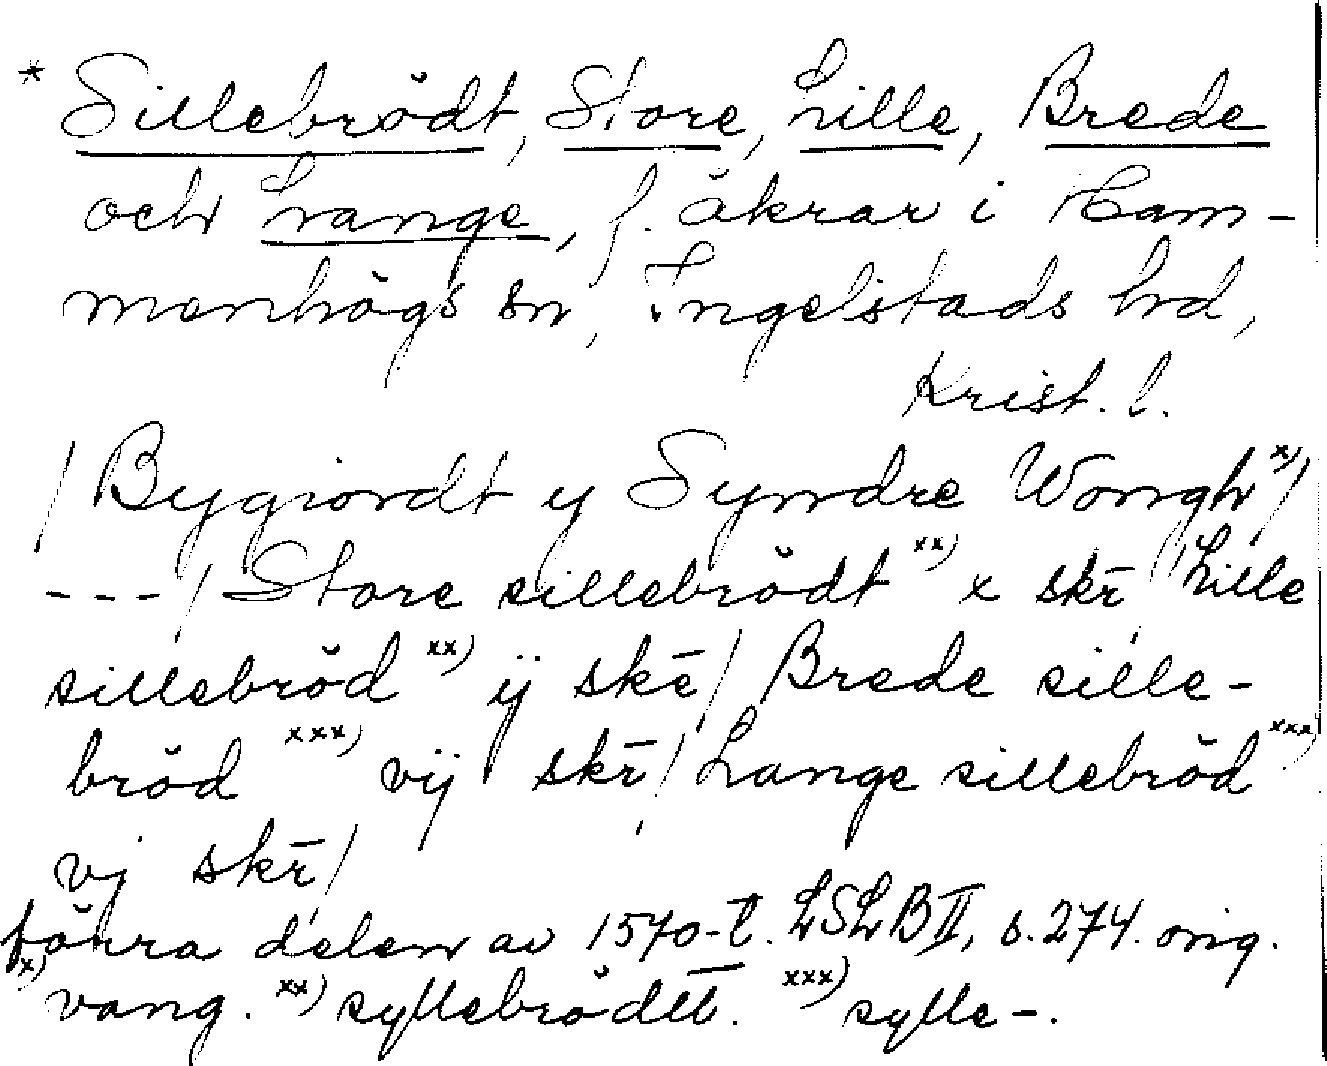 * Sillebrödt, Store, Lille, Brede
och Lange, f. åkrar i Ham-
menhögs sn, Ingelstads hd,
Krist. l.
/ Bygiordt y Syndre Wongh x) /
---/ Store sillebrödt xx) x skr̄ / Lille
sillebröd xx) ij skē / Brede sille-
bröd xxx) vij skr̄ / Lange sillebröd xxx)
vj skr̄ /
förra delen av 1570-t. LSLB II, s. 274. orig.
x) vang. xx) syllebrödtt. xxx) sylle-.